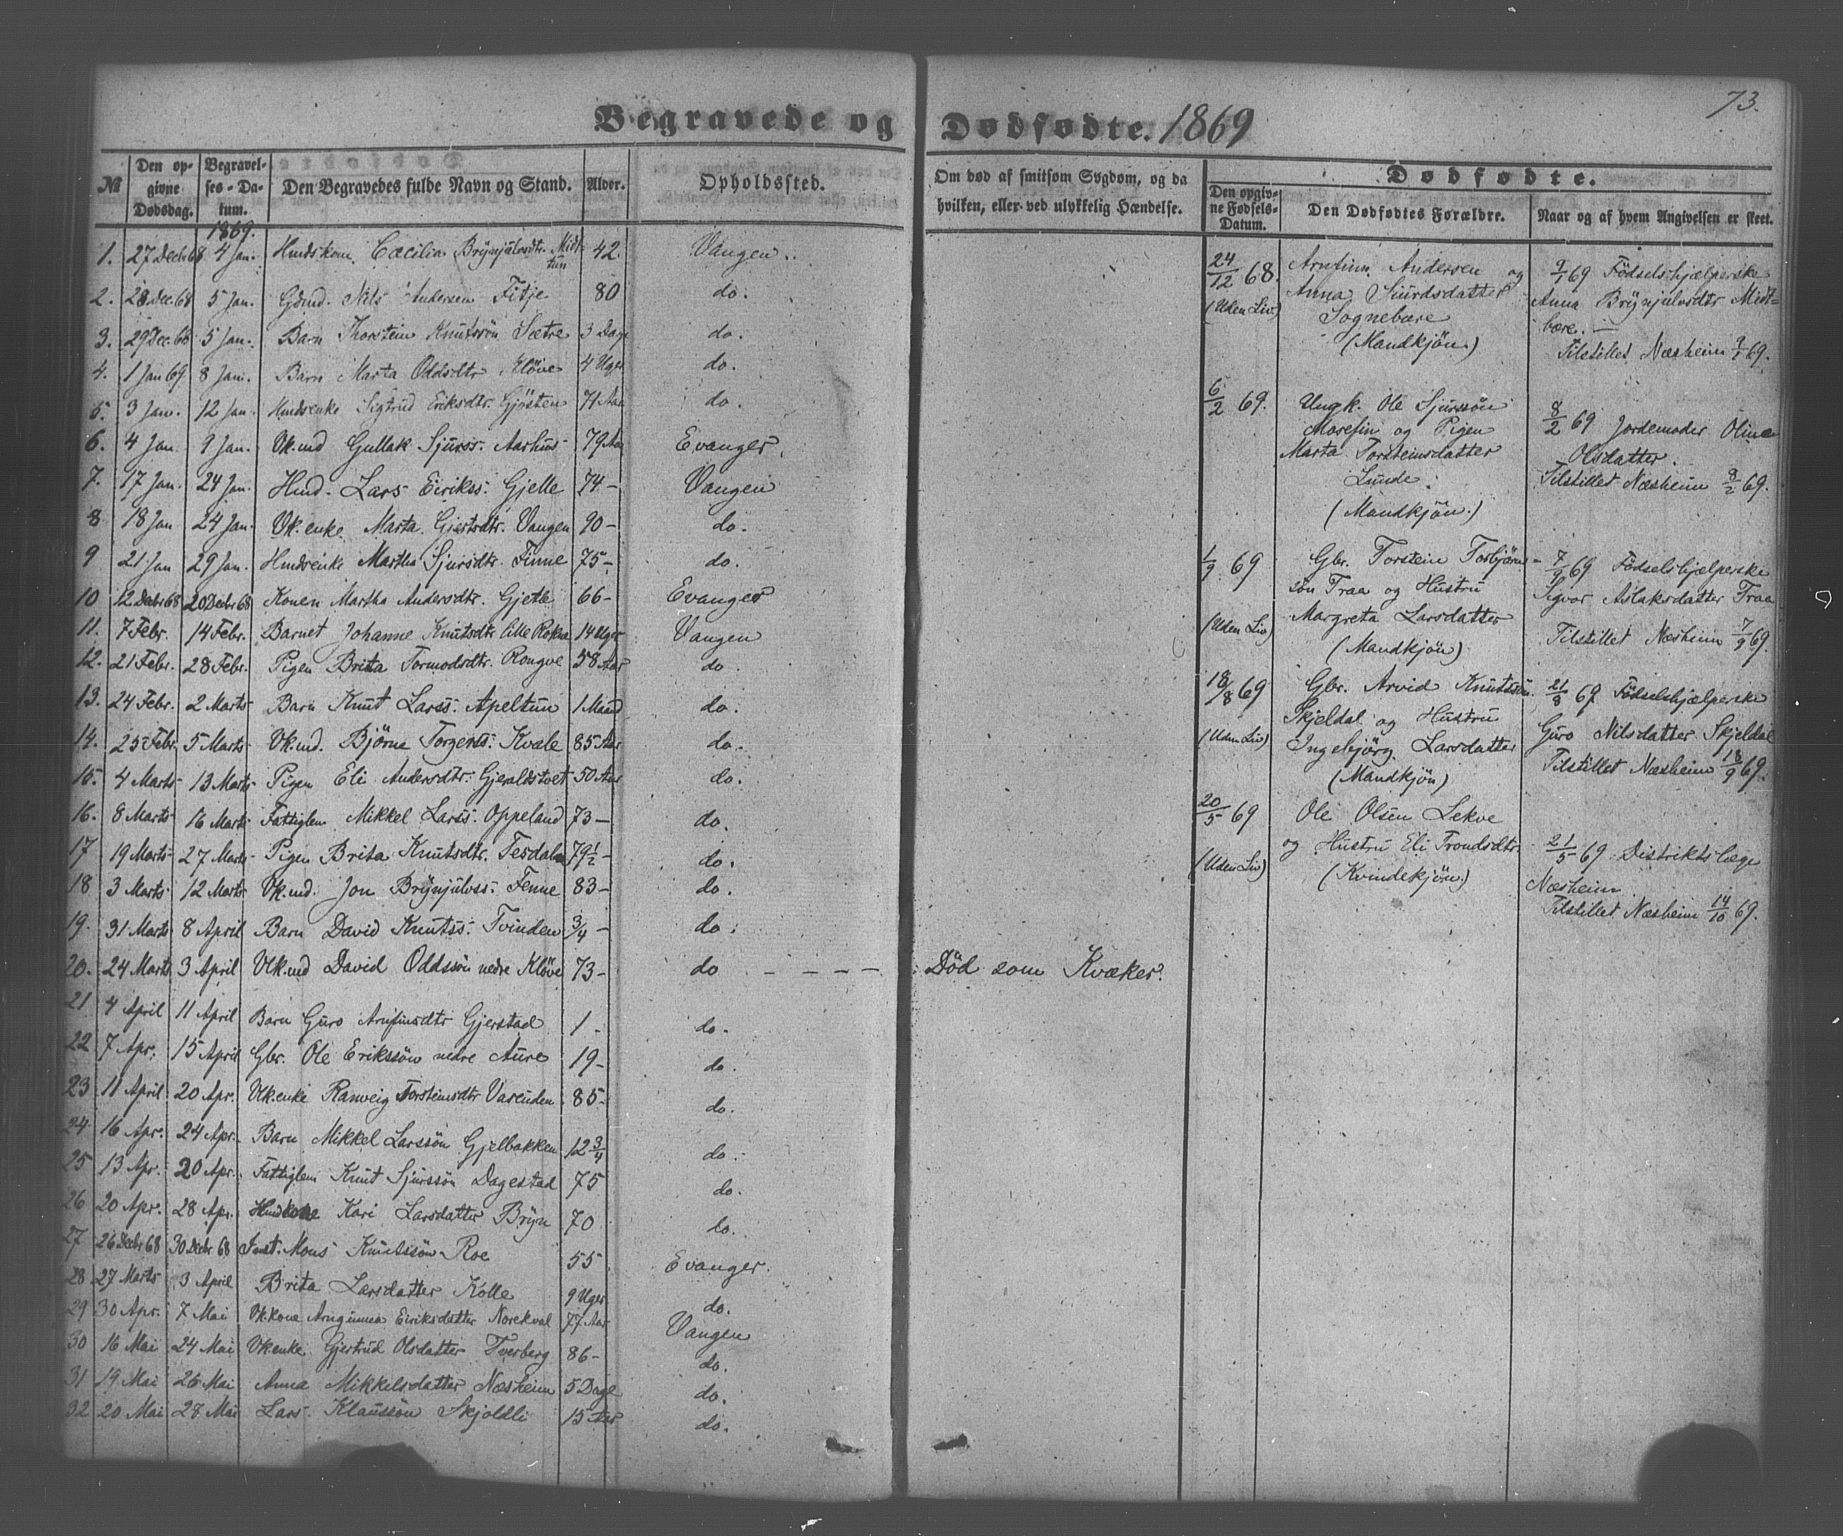 73.
Begravede og Dødfødte. 1869
№ Den opgivne Dødsdag. Begravelses-Datum. Den Begravedes fulde Navn og Stand. Alder. Opholdssted. Om død af smitsom Sygdom, og da hvilken, eller ved ulykkelig Hændelse.
Dødfødte.
Den opgivne Fødsels-Datum. Den Dødfødtes Forældre. Naar og af hvem Angivelsen er skeet.
1869.
1. 27 Decb 68 4 Jan. Hmdskone Cæcilia Brÿnjulvsdtr. Midttun 42. Vangen.
2. 28 Dec. 68 5 Jan. Gdmd. Nils Andersen Fitje 80 do.
3. 29 Dec. 68 5 Jan. Barn Thorstein Knutssön Sætre 3 Dage do.
4. 1 Jan 69 8 Jan. Barn Marta Oddsdtr Kløve 4 Uger do.
5. 3 Jan. 12 Jan. Hmdsenke Sigtrud Eriksdtr. Gjösten 71 Aar do.
6. 4 Jan. 9 Jan. Vk.md Gullak Sjurss. Aarhus 79 Aar Evanger.
7. 17 Jan. 24 Jan. Hmd. Lars Eirikss. Gjelle 74 - Vangen
8 18 Jan 24 Jan. Vk.enke Marta Gjertsdtr. Vangen 90 - do.
9 21 Jan 29 Jan. Hmdsenke Martha Sjursdtr. Finne 75 - do.
10 12 Decbr 68 20 Decbr 68 Konen Martha Andersdtr. Gjetle 66 - Evanger
11. 7 Febr. 14 Febr. Barnet Johanne Knutsdtr lille Rokne 14 Uger Vangen
12. 21 Febr. 28 Febr. Pigen Brita Tormodsdtr. Rongve 58 Aar do.
13. 24 Febr. 2 Marts Barn Knut Larss. Apeltun 1 Maand do.
14. 25 Febr. 5 Marts Vk.md. Bjørne Torgerss. Kvale 85 Aar do.
15. 4 Marts 13 Marts Pigen Eli Andersdtr. Gjeraldstvet 50 Aar do.
16. 8 Marts 16 Marts Fattiglem Mikkel Larss. Oppeland 73 - do.
17 19 Marts 27 Marts Pigen Brita Knutsdtr. Tesdalen 79½ - do.
18 3 Marts 12 Marts Vk.md. Jon Brÿnjulvss. Fenne 83 - do.
19. 31 Marts 8 April Barn David Knutss. Tvinden ¾ - do.
20. 24 Marts 3 April Vk.md David Oddssön nedre Klöve 73 - do - - - - Död som Kvæker.
21 4 April 11 April Barn Guro Arnfinsdtr Gjerstad 1 - do.
22 7 Apr. 15 April Gbr. Ole Erikssön nedre Aure 19 - do.
23 11 April 20 Apr. Vk.enke Ranveig Torsteinsdtr Varenden 85 - do.
24 16 Apr. 24 Apr. Barn Mikkel Larssön Gjelbakken 12¾ do.
25 13 Apr. 20 Apr. Fattiglem Knut Sjurssön Dagestad 75 do.
26 20 Apr. 28 Apr. Hmdkone Kari Larsdatter Brÿn 70 do.
27 26 Decbr 68 30 Decbr 68 Inst. Mons Knutssön Roe 55 Evanger.
28 27 Marts 3 April Brita Larsdatter Kolle 9 Uger do.
29 30 Apr. 7 Mai Vk.kone Arnginnea Eiriksdatter Norekval 77 Aar Vangen
30 16 Mai 24 Mai Vk.enke Gjertrud Olsdatter Tverberg 86 - do.
31 19 Mai 26 Mai Anna Mikkelsdatter Næsheim 5 Dage do.
32 20 Mai 28 Mai Lars Klaussön Skjoldli 15 Aar do.
24/12 68. (Uden Liv) Arnfinn Andersen og Anna Siurdsdatter Sognebære (Mandkjön.)
9/1 69 Födselshjælperske Anna Brÿnjulvsdtr Midtbære. - Tilstillet Næsheim 9/1 69.
6/2 69. Ungk. Ole Sjurssön Morefin og Pigen Marta Torsteinsdatter Lunde. (Mandkjön.)
8/2 69 Jordemoder Oline Olsdatter. Tilstillet Næsheim 8/2 69.
1/9 69 (Uden Liv) Gbr. Torstein Torbjörnsön Traa og Hustru Margreta Larsdatter (Mandkjön)
7/9 69 Födselshjælperske Sigvor Aslaksdatter Traa Tilstillet Næsheim 7/9 69.
18/8 69 (Uden Liv) Gbr. Arvid Knutssön Skjeldal og Hustru Ingebjörg Larsdatter (Mandkjön)
21/8 69 Födselshjælperske Guro Nilsdatter Skjeldal Tilstillet Næsheim 18/9 69.
20/5 69 (Uden Liv) Ole Olsen Lekve og Hustru Eli Trondsdtr. (Kvindekjön)
21/5 69 Distriktslæge Næsheim Tilstillet Næsheim 14/10 69.